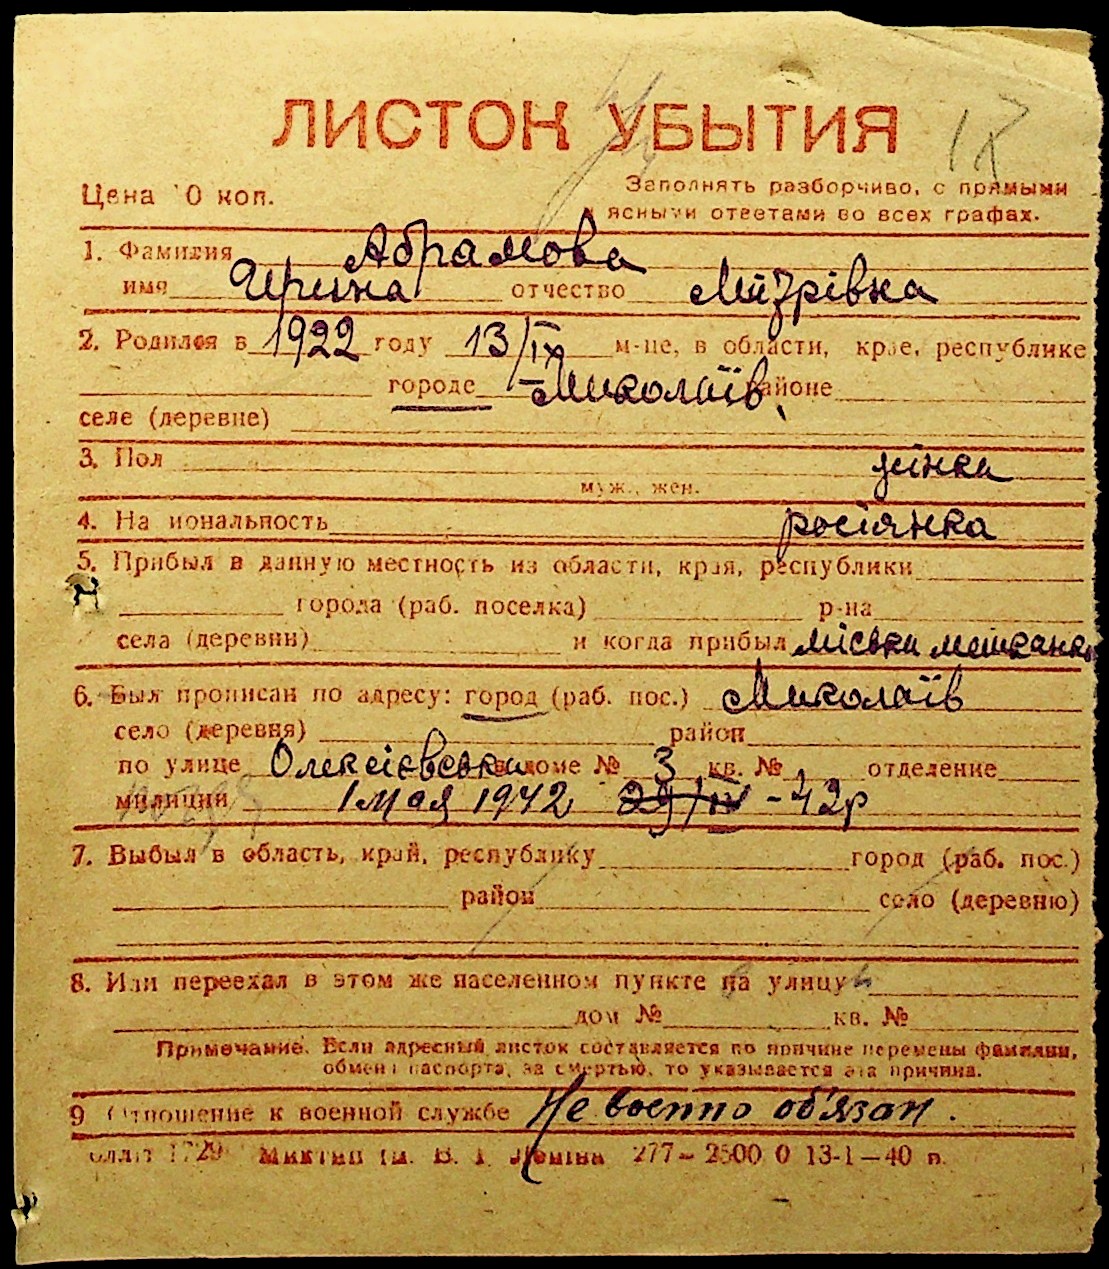 ЛИСТОК УБЫТИЯ
Цена 0 коп.
Заполнять разборчиво, с прямыми
ясными ответами во всех графах.
1. Фамилия Абрамова
имя Ирина отчество
2. Родился в 1922 году 13/IX м-це, в области, крае, республике
городе Миколаїв, районе
селе (деревне)
3. Пол жінка
муж., жен.
4. Национальность росіянка
5. Прибыл в данную местность из области, края, республики
города (раб. поселка) р-на
села (деревни) и когда прибыл міська мешканка
6. Был прописан по адресу: город (раб. пос.) Миколаїв
село (деревня) район
по улице Олексієвська в доме № 3 кв. № отделение
милиции 1 мая 1942 29/IV - 42р
7. Выбыл в область, край, республику город (раб. пос.)
район село (деревню)
8. Или переехал в этом же населенном пункте на улицу
дом № кв. №
Примечание. Если адресный листок составляется по причине перемены фамилии,
обмена паспорта, за смертью, то указывается эта причина.
9 Отношение к военной службе Не военно об'язан.
1729 им. В. І. Леніна 277–2500 0 13-1–40 п.